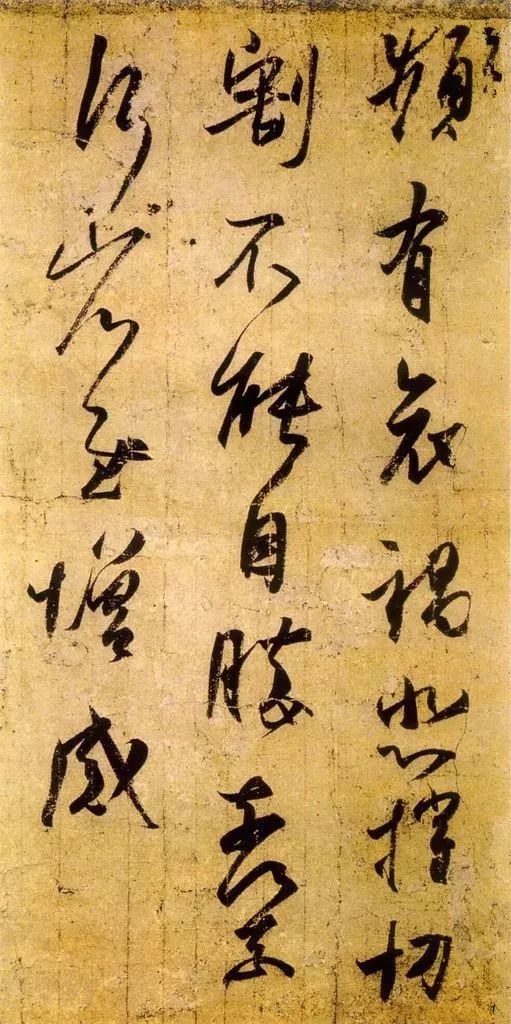 频有哀祸悲摧切
割不能自胜奈
何奈何省慰增感